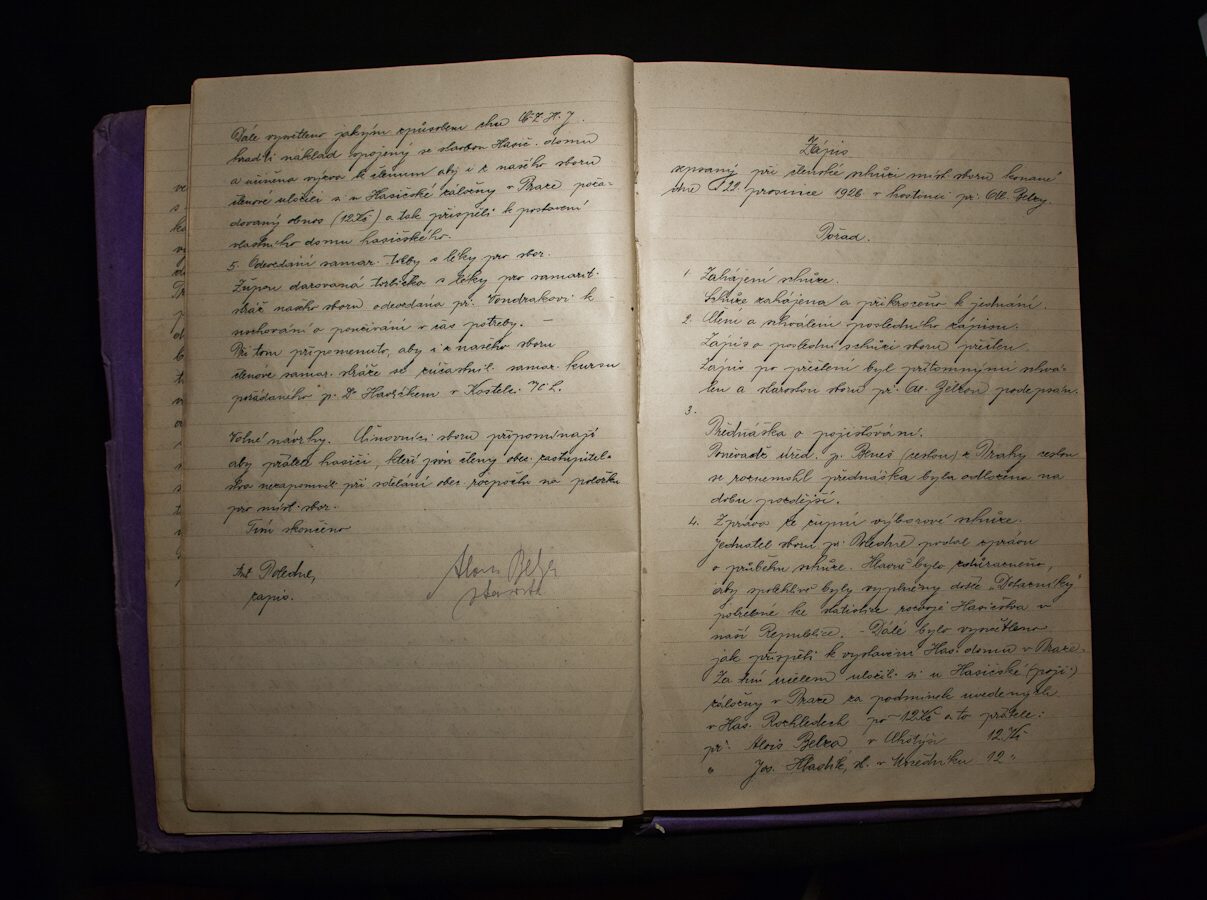 Dále vysvětleno jakým způsobem chce
hraditi náklad spojený se stavbou Hasič. domu
a učiněna výzva k členům aby i z našeho sboru
členové uložili si u Hasičské záložny v Praze poža-
dovaný obnos (12 Kč) a tak přispěli k postavení
vlastního domu hasičského.
5. Odevzdání samar. torby s léky pro sbor.
Župou darovaná torbička s léky pro samarit.
stráž našeho sboru odevzdána př. Vondrákovi k
uschování a používání v čas potřeby. –
Při tom připomenuto, aby i z našeho sboru
členové samar. stráže se zúčastnili samar. kursu
pořádaného p. Dr Havlíčkem v Kostelci n. L.
Volné návrhy. Činovníci sboru připomínají
aby přátelé hasiči, kteří jsou členy obec. zastupitel-
stva nezapomněli při sdělání obec. rozpočtu na položku
pro míst. sbor.
Tím skončeno
Ant. Poledne,
zapis.
Alois
starosta
Zápis
sepsaný při členské schůzi míst. sboru konané
dne 22. prosince 1926 v hostinci př. Al. Belzy.
Pořad.
1. Zahájení schůze.
Schůze zahájena a přikročeno k jednání.
2. Čtení a schválení posledního zápisu.
Zápis o poslední schůzi sboru přečten.
Zápis po přečtení byl přítomnými schvá-
len a starostou sboru př. Al. Belzou podepsán.
3.
Přednáška o pojišťování.
Poněvadž úřed. p. Beneš (cestou) z Prahy cestou
se roznemohl přednáška byla odložena na
dobu pozdější.
4. Zpráva ze župní výborové schůze.
Jednatel sboru př. Poledne podal zprávu
o průběhu schůze. Hlavně bylo zdůrazněno,
aby spolehlivě byly vyplněny došlé „Dotazníky"
potřebné ke statistice rozvoje Hasičstva v
naší Republice. – Dále bylo vysvětleno
jak přispěti k vystavení Has. domu v Praze.
Za tím účelem uložili si u Hasičské (poji)
záložny v Praze za podmínek uvedených
v Has. Rozhledech po 12 Kč a to přátelé:
př. Alois Belza v 12 Kč
" Jos. v 12 "